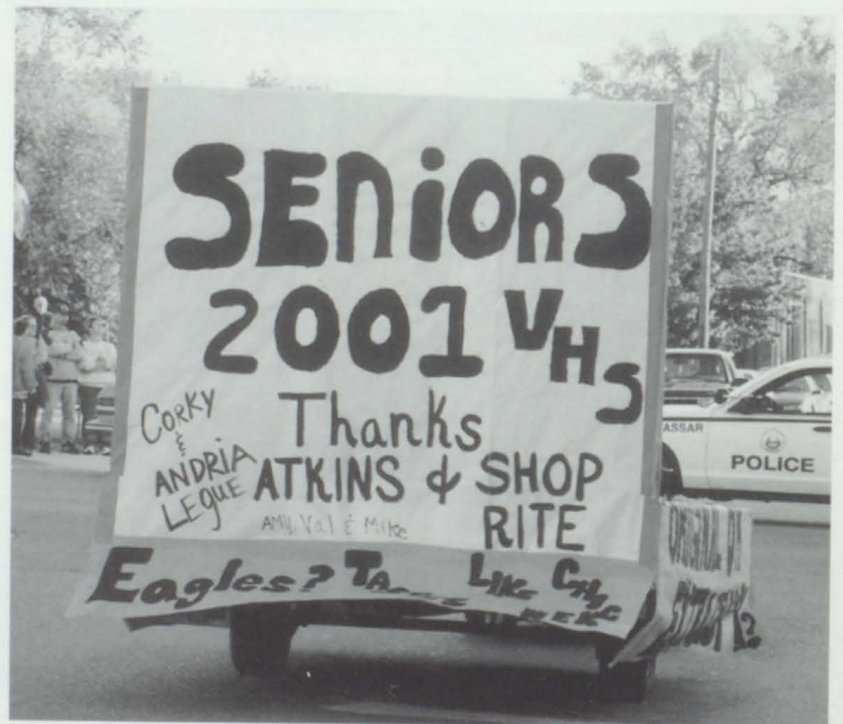 SENiORS
2001 VHS
CORKY
&
ANDRIA
LEGUE
Thanks
ATKINS & SHOP
RITE
AMY, Val & Mike
Eagles? Like
ORIGINAL
ASSAR
POLICE